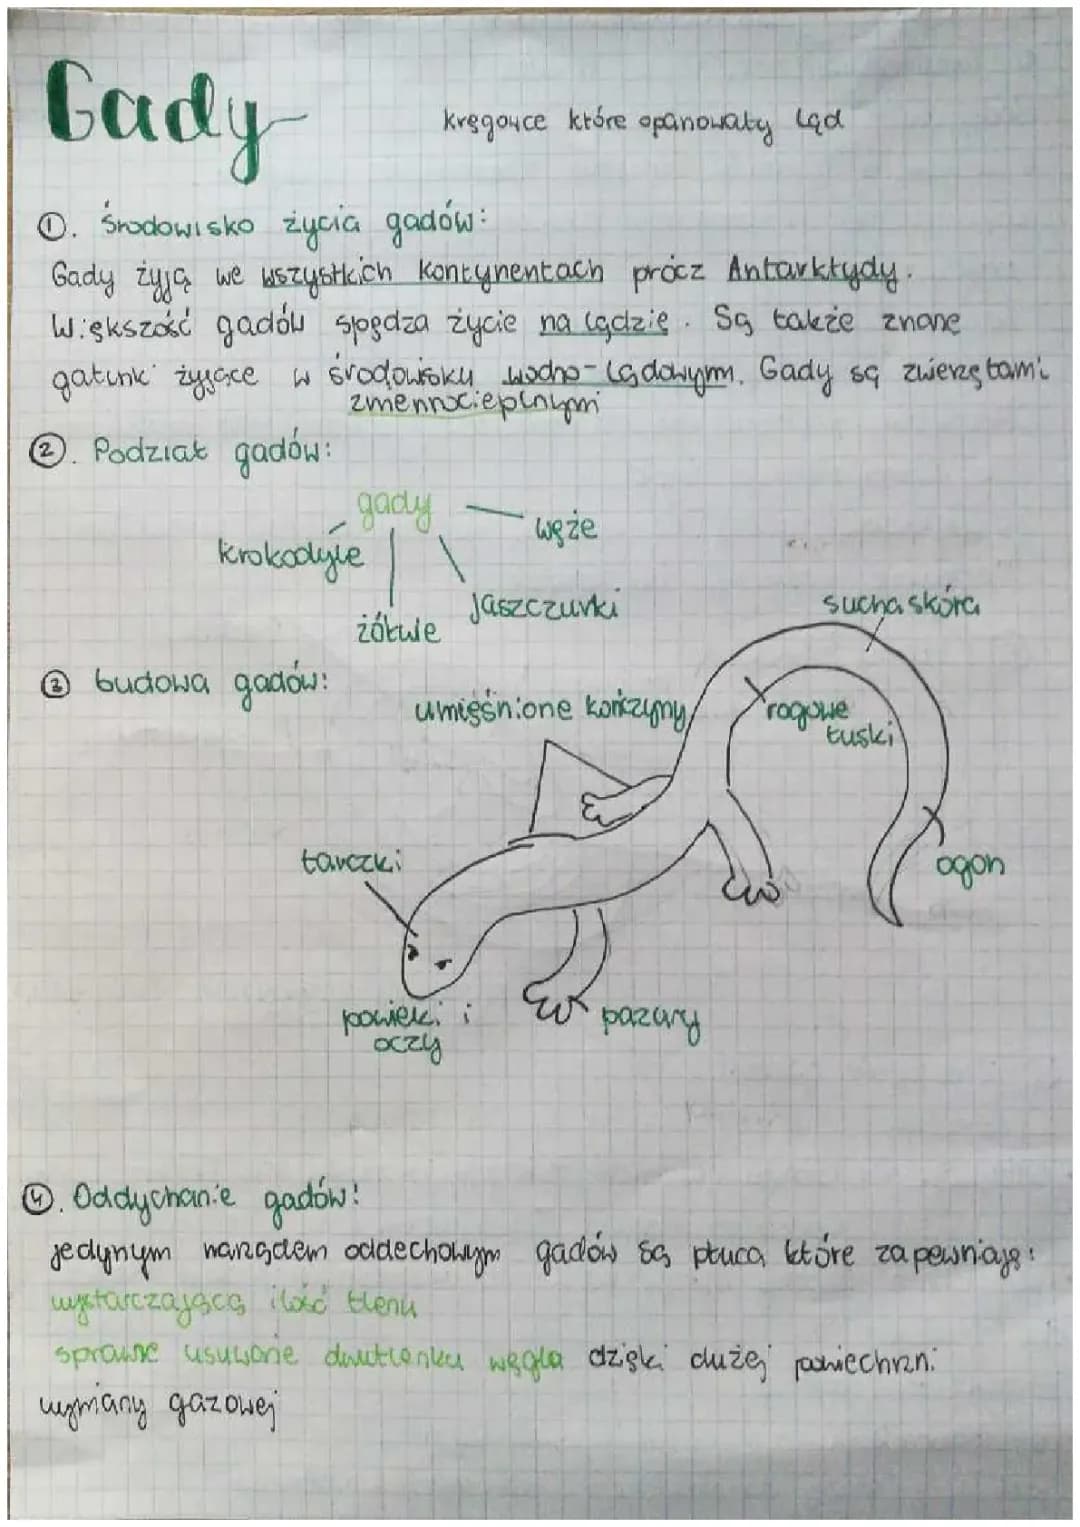 Gady
kręgowce które opanowały ląd
①. Środowisko życia gadów:
Gady żyją we wszystkich kontynentach prócz Antarktydy.
Większość gadów spędza życie na lądzie. Są także znane
gatunki żyjące w środowisku wodno-lądowym. Gady są zwierzętami
zmennocieplnymi
②. Podział gadów:
gady
węże
krokodyle
jaszczurki
żółwie
③ budowa gadów:
sucha skóra
umięśnione kończyny
rogowe
łuski
tarczki
ogon
powieki i
oczy
pazury
④. Oddychanie gadów:
jedynym narządem oddechowym gadów są płuca które zapewniają:
wystarczającą ilość tlenu
sprawne usuwanie dwutlenku węgla dzięki dużej powiechrzni
wymiany gazowej